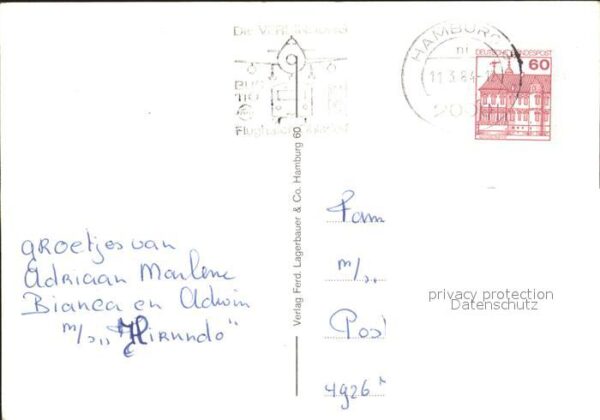 Die
HAMBURG
DEUTSCHE BUNDESPOST
60
11.3.84-12
Verlag Ferd. Lagerbauer & Co. Hamburg 60
groetjes van
Adriaan Marlene
Bianca en Adwin
m/s „Hirundo"
Fam
m/s.
Pos
4926
privacy protection
Datenschutz